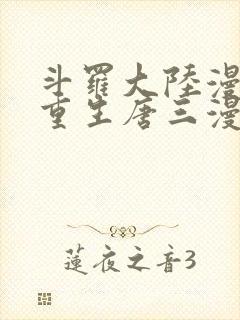 斗羅大陸漫
重生唐三漫
蓮夜之音3